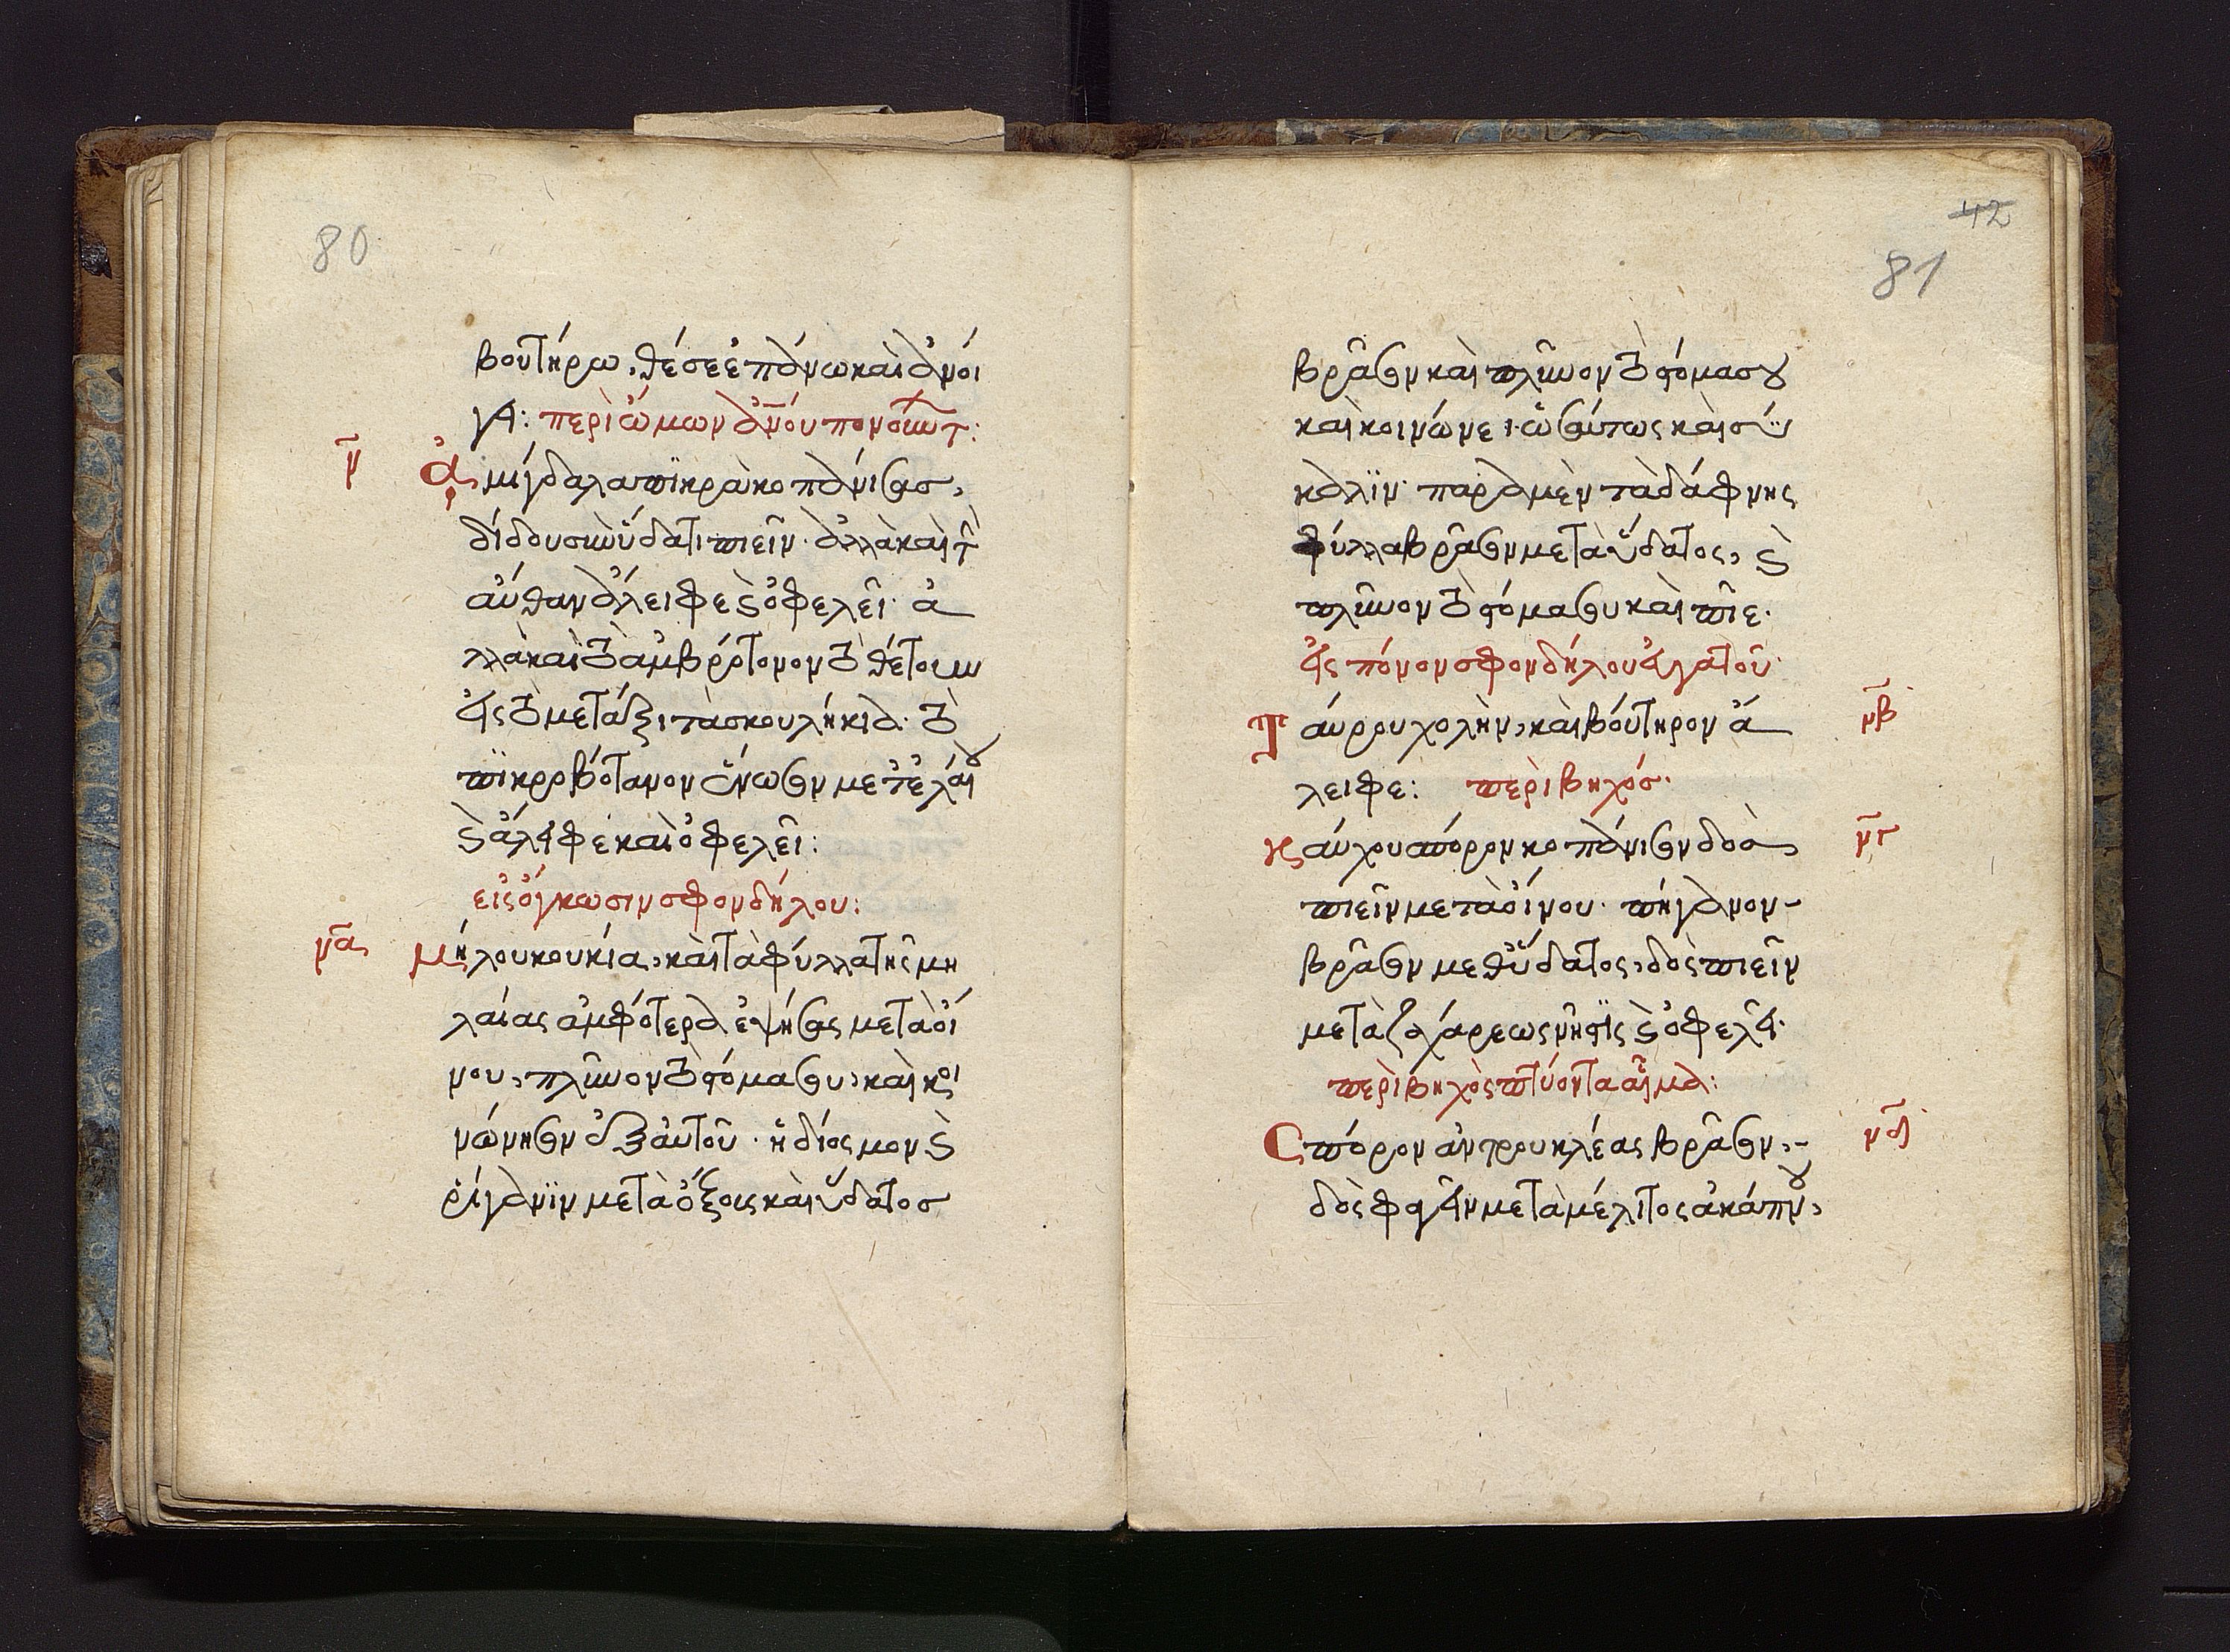 80
βουτήρω, θέσε ἐπάνω καὶ ἀνοί
γει: περὶ ὤμων ἀνου πονούντ:
ν̄ Ἀμίγδαλα πϊκρὰ κοπάνισας,
δίδου σὺν ὕδατι πιεῖν· ἀλλὰ καὶ τ
αύθαν ἄλειφε καὶ ὀφελεῖ· ἀ
λλὰ καὶ τὸ ἀμβρότονον τὸ θέτουν
εἰς τὸ μετάξι τὰ σκουλήκια· τὸ
πϊκροβότανον ἕνωσον με τὲ ἐλάιου
καὶ ἄλειφε καὶ ὀφελεῖ:
εἰς ὄγκωσιν σφονδήλου:
ν̄α Μήλου κουκία, καὶ τὰ φύλλα τῆς μη
λαίας ἀμφότερα ἐψήσας μετὰ οἴ
νου, πλῦνον τὸ στόμα σου, καὶ κοι
νώνησον ἐξ αὐτοῦ· ἡδίοσμον καὶ
ῥίγανϊν μετὰ ὄξους καὶ ὕδατος
42
81
βράσον καὶ πλῦνον τὸ στόμα σου
καὶ κοινώνει· ὡσαύτως καὶ σ
κάλϊν· παρὰ μὲν τὰ δάφνης
φύλλα βράσον μετὰ ὕδατος, καὶ
πλῦνον τὸ στόμα σου καὶ πῖε·
εἰς πόνον σφονδήλου εἰγατοῦ·
Ταύρου χολὴν, καὶ βούτηρον ἄ ν̄β
λειφε: περὶ βηχός·
Καύχου σπόρον κοπάνισον δὸς, ν̄γ
πιεῖν μετὰ οἴνου· πήγανον-
βράσον μεθ' ὕδατος, δὸς πιεῖν
μετὰ ζαχάρεως νῆστις καὶ ὀφελεῖ·
περὶ βηχὸς πτύοντα αἷμα:
Σπόρον ἀντρουκλέας βράσον,- ν̄δ
δὸς φαγεῖν μετὰ μέλιτος ἀκάπνου,